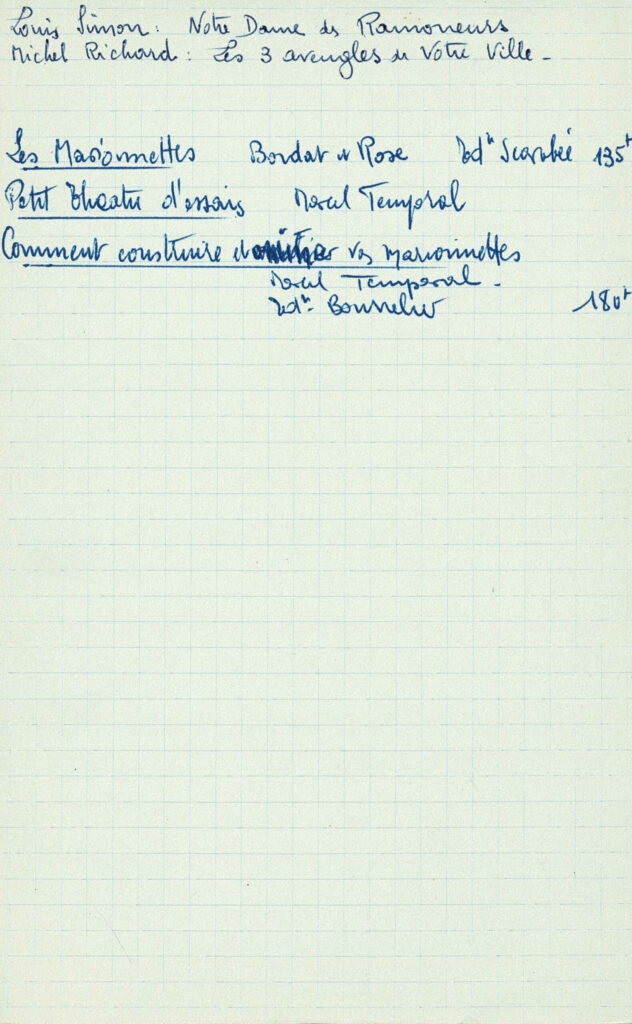 Louis Simon : Notre Dame des Ramoneurs
Michel Richard : Les 3 aveugles de Votre Ville -
Les Marionnettes Bordat et Rose Edn Scarabée 135f
Petit théatre d'essais Marcel Temporal
Comment construire et vos marionnettes
Marcel Temporal -
Edn Bourrelier 180f